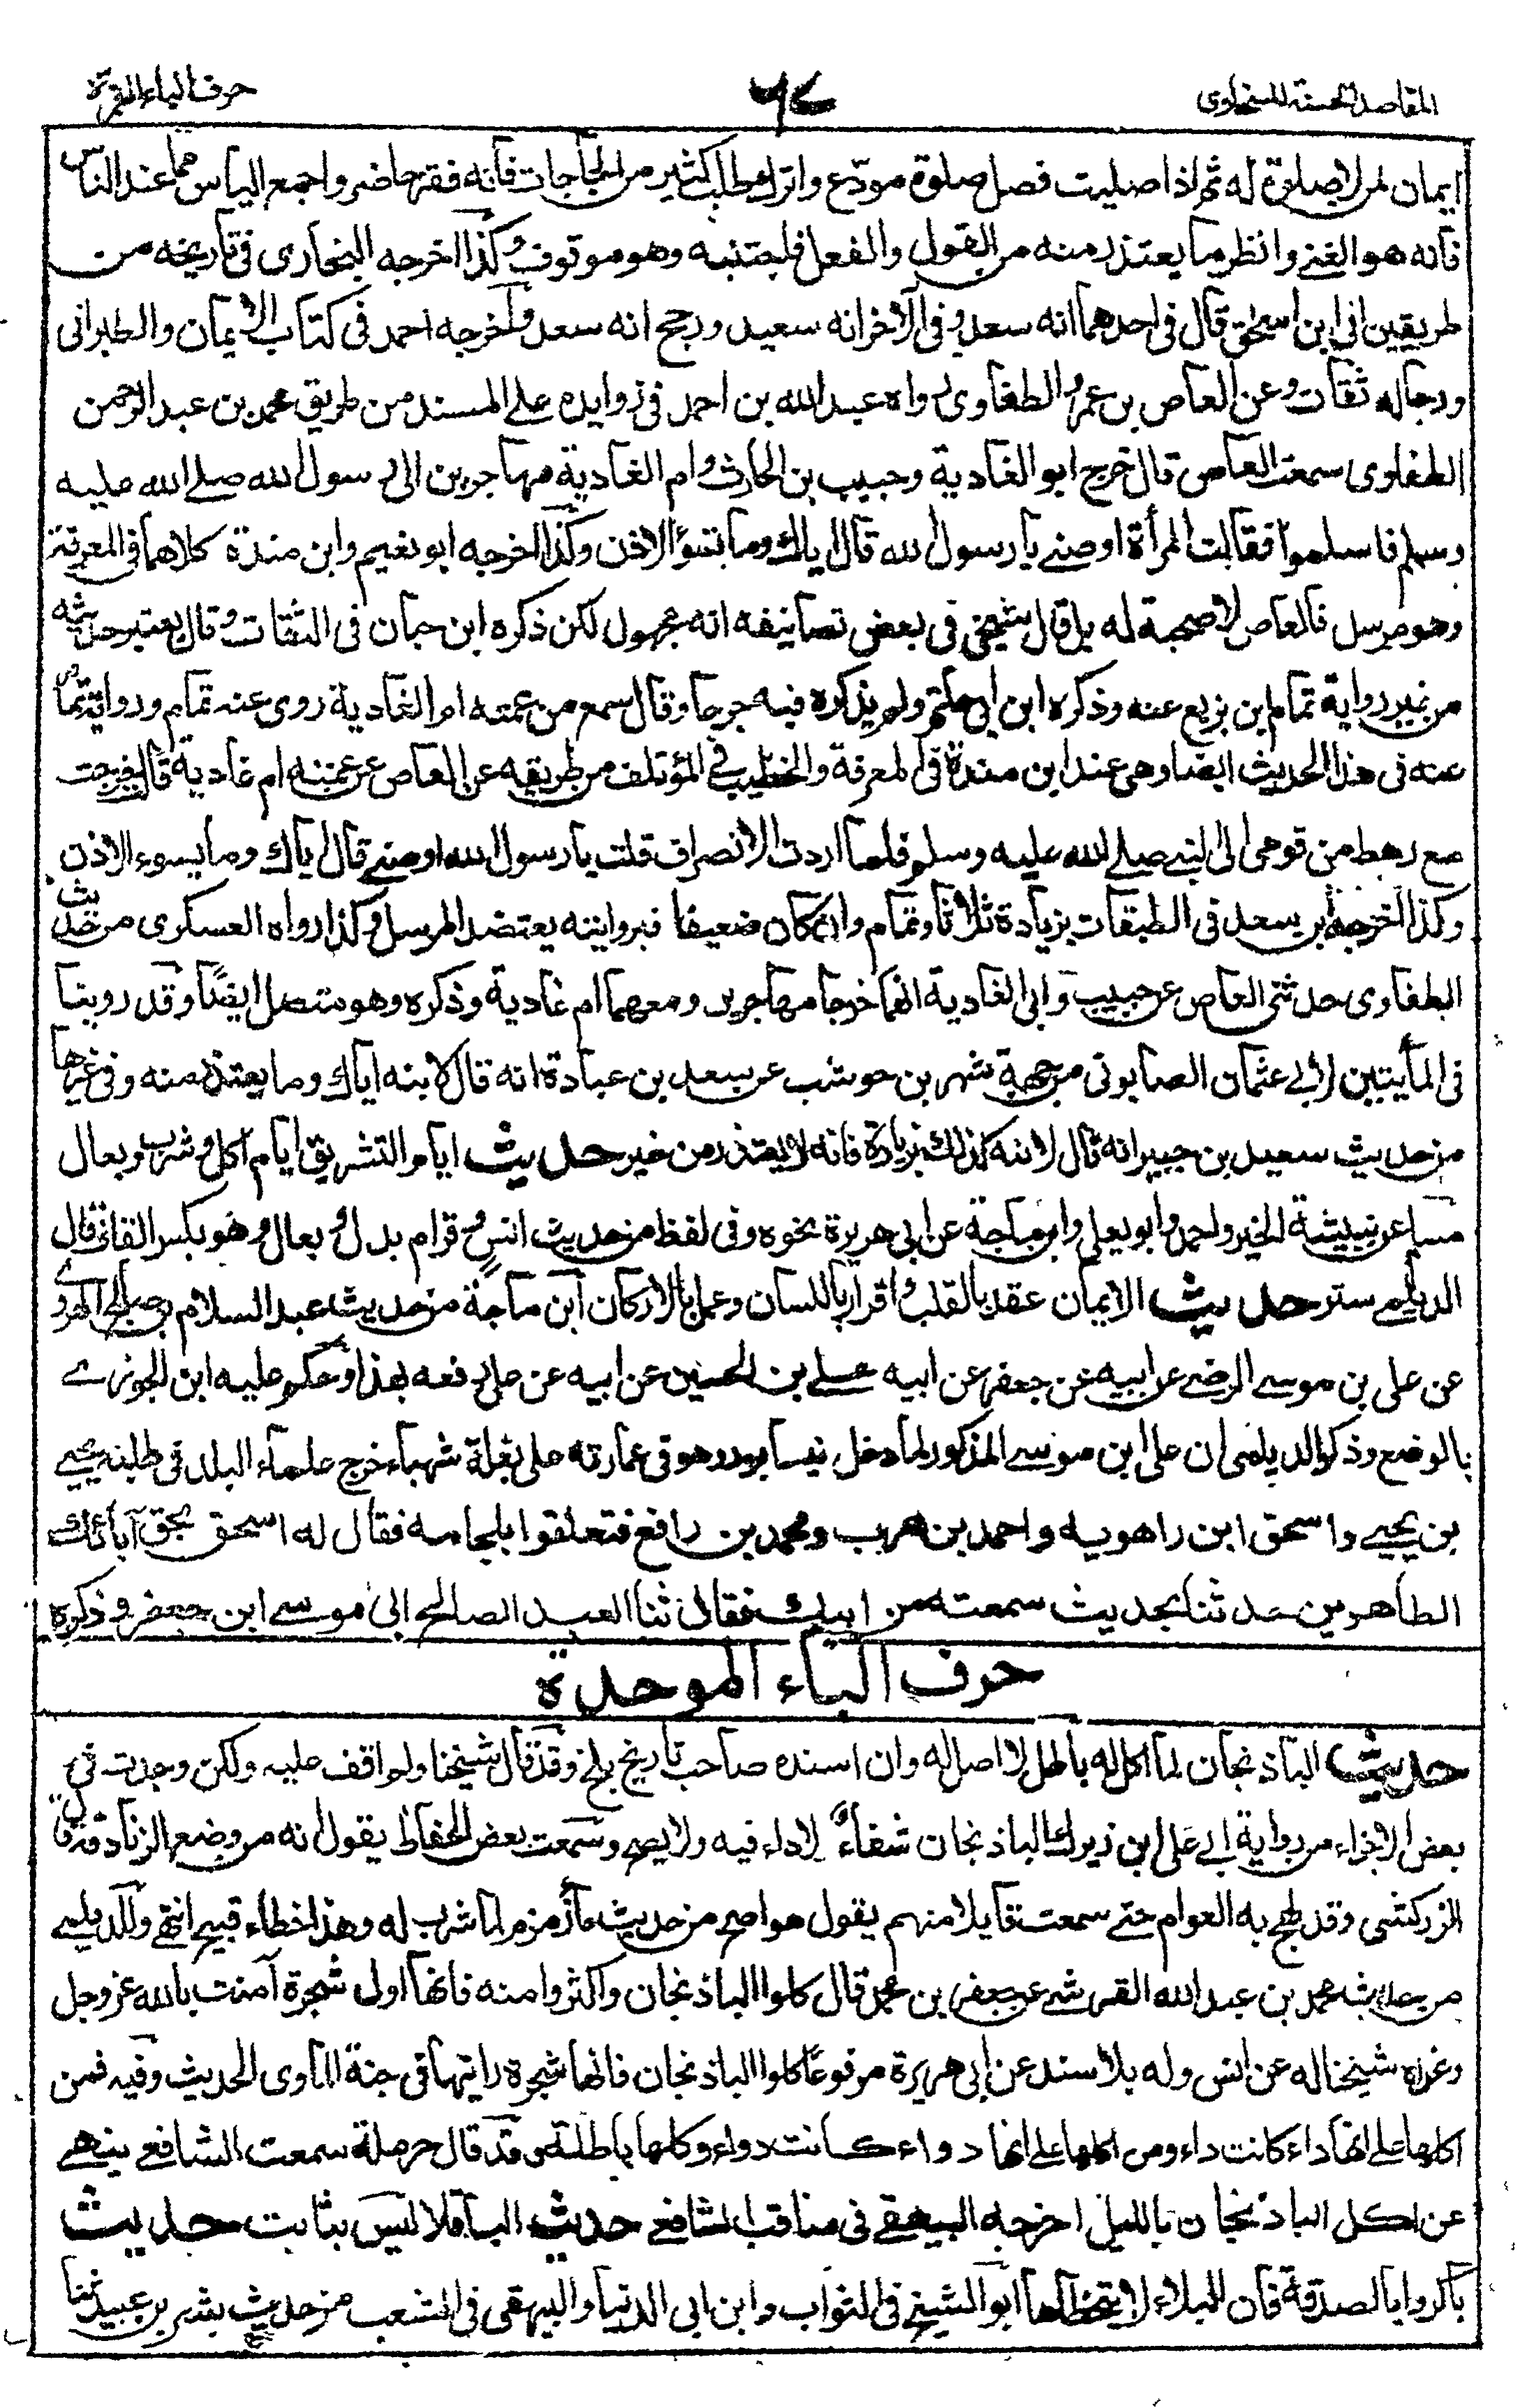 المقاصد الحسنة للسخاوى
٦٧
حرف الباء المقرة
ايمان لمن لا صلوة له ثم اذا صليت فصل صلوة مودع واترك طلب كثير من الحاجات فانه فقر حاضر واجمع الياس مما عند الناس
فانه هو الغنے وانظر ما يعتذر منه من القول والفعل فاجتنبه وهو موقوف وكذا اخرجه البخارى فى تاريخه من
طريقين الى ابن اسحق قال فى احدهما انه سعد وفى الآخر انه سعيد ورجح انه سعد واخرجه احمد فى كتاب الايمان والطبرانى
ورجاله ثقات وعن العاص بن عمرو الطفاوى رواه عبد الله بن احمد فى زوايده على المسند من طريق محمد بن عبد الرحمن
الطفاوى سمعت العاص قال خرج ابو الغادية وحبيب بن الحارث وام الغادية مهاجرين الى رسول الله صلے الله عليه
وسلم فاسلموا فقالت المرأة اوصنے يا رسول الله قال اياك وما يسؤ الاذن وكذا اخرجه ابو نعيم وابن مندة كلاهما فى المعرفة
وهو مرسل فالعاص لا صحبة له بل قال شيخى فى بعض تصانيفه انه مجهول لكن ذكره ابن حبان فى الثقات وقال يعتبر حديثه
من غير رواية تمام ابن بزيع عنه وذكره ابن ابى حاتم ولم يذكره فيه جرحا وقال سمع من عمته ام الغادية روى عنه تمام ورواية تمام
عنه فى هذا الحديث ايضا وهى عند ابن مندة فى المعرفة والخطيب فى المؤتلف من طريقه عن العاص عن عمته ام غادية قالت خرجت
مع رهط من قومى الى النبے صلے الله عليه وسلم فلما اردت الانصراف قلت يا رسول الله اوصنے قال اياك وما يسوء الاذن
وكذا اخرجه ابن سعد فى الطبقات بزيادة ثلاثا وتمام وان كان ضعيفا فبروايته يعتضد المرسل وكذا رواه العسكرى من حديث
الطفاوى حدثنى العاص عن حبيب وابى الغادية انهما خرجا مهاجرين ومعهما ام غادية وذكره وهو متصل ايضًا وقد روينا
فى المأيتين لابے عثمان الصابونى من جهة شهر بن حوشب عن سعد بن عبادة انه قال لابنه اياك وما يعتذر منه وفى غيرها
من حديث سعيد بن جبير انه قال لابنه كذلك بزيادة فانه لا يعتذر من خير حديث ايام التشريق ايام اكل وشرب وبعال
مسلم عن نبيشة الخير واحمد وابو يعلى وابن ماجة عن ابى هريرة نحوه وفى لفظ من حديث انس وقرام بدل وبعال وهو بكسر القاف قال
الديلمے ستر حديث الايمان عقد بالقلب واقرار باللسان وعمل بالاركان ابن ماجة من حديث عبد السلام بن صالح الهروے
عن على بن موسے الرضے عن ابيه عن جعفر عن ابيه علے بن الحسين عن ابيه عن على رفعه بهذا وحكم عليه ابن الجوزے
بالوضع وذكر الديلمى ان على ابن موسے المذكور لما دخل نيسابور وهو فى عمارته على بغلة شهباء خرج علماء البلد فى طلبته يحيے
بن يحيے واسحق ابن راهويه واحمد بن حرب ومحمد بن رافع فتعلقوا بلجامه فقال له اسحق بحق آبائك
الطاهرين حدثنا بحديث سمعته من ابيك فقال ثنا العبد الصالح ابى موسے ابن جعفر وذكره
حرف الباء الموحدة
حديث الباذنجان لما اكل له باطل لا اصل له وان اسنده صاحب تاريخ بلخ وقد قال شيخنا ولم اقف عليه ولكن وجدت فى
بعض الاجزاء من رواية ابے على ابن زيرك الباذنجان شفاءٌ لا داء فيه ولا يصح وسمعت بعض الحفاظ يقول انه من وضع الزنادقة قال
الزركشى وقد لهج به العوام حتے سمعت قايلا منهم يقول هو اصح من حديث ماء زمزم لما شرب له وهذا خطاء قبيح انتهے وللديلمے
من حديث محمد بن عبد الله القرشے عن جعفر بن محمد قال كلوا الباذنجان واكثروا منه فانها اولى شجرة آمنت بالله عز وجل
وعزاه شيخنا له عن انس وله بلا سند عن ابى هريرة مرفوعًا كلوا الباذنجان فانها شجرة رايتها فى جنة الماوى الحديث وفيه فمن
اكلها على انها داء كانت داء ومن اكلها على انها دواء كانت دواء وكلها باطلة وقد قال حرملة سمعت الشافعے ينهے
عن اكل الباذنجان بالليل اخرجه البيهقے فى مناقب الشافعے حديث الباقلا ليس بثابت حديث
باكروا بالصدقة فان البلاء لا يتخطاها ابو الشيخ فى الثواب وابن ابى الدنيا والبيهقى فى الشعب من حديث بشر بن عبيد ثنا